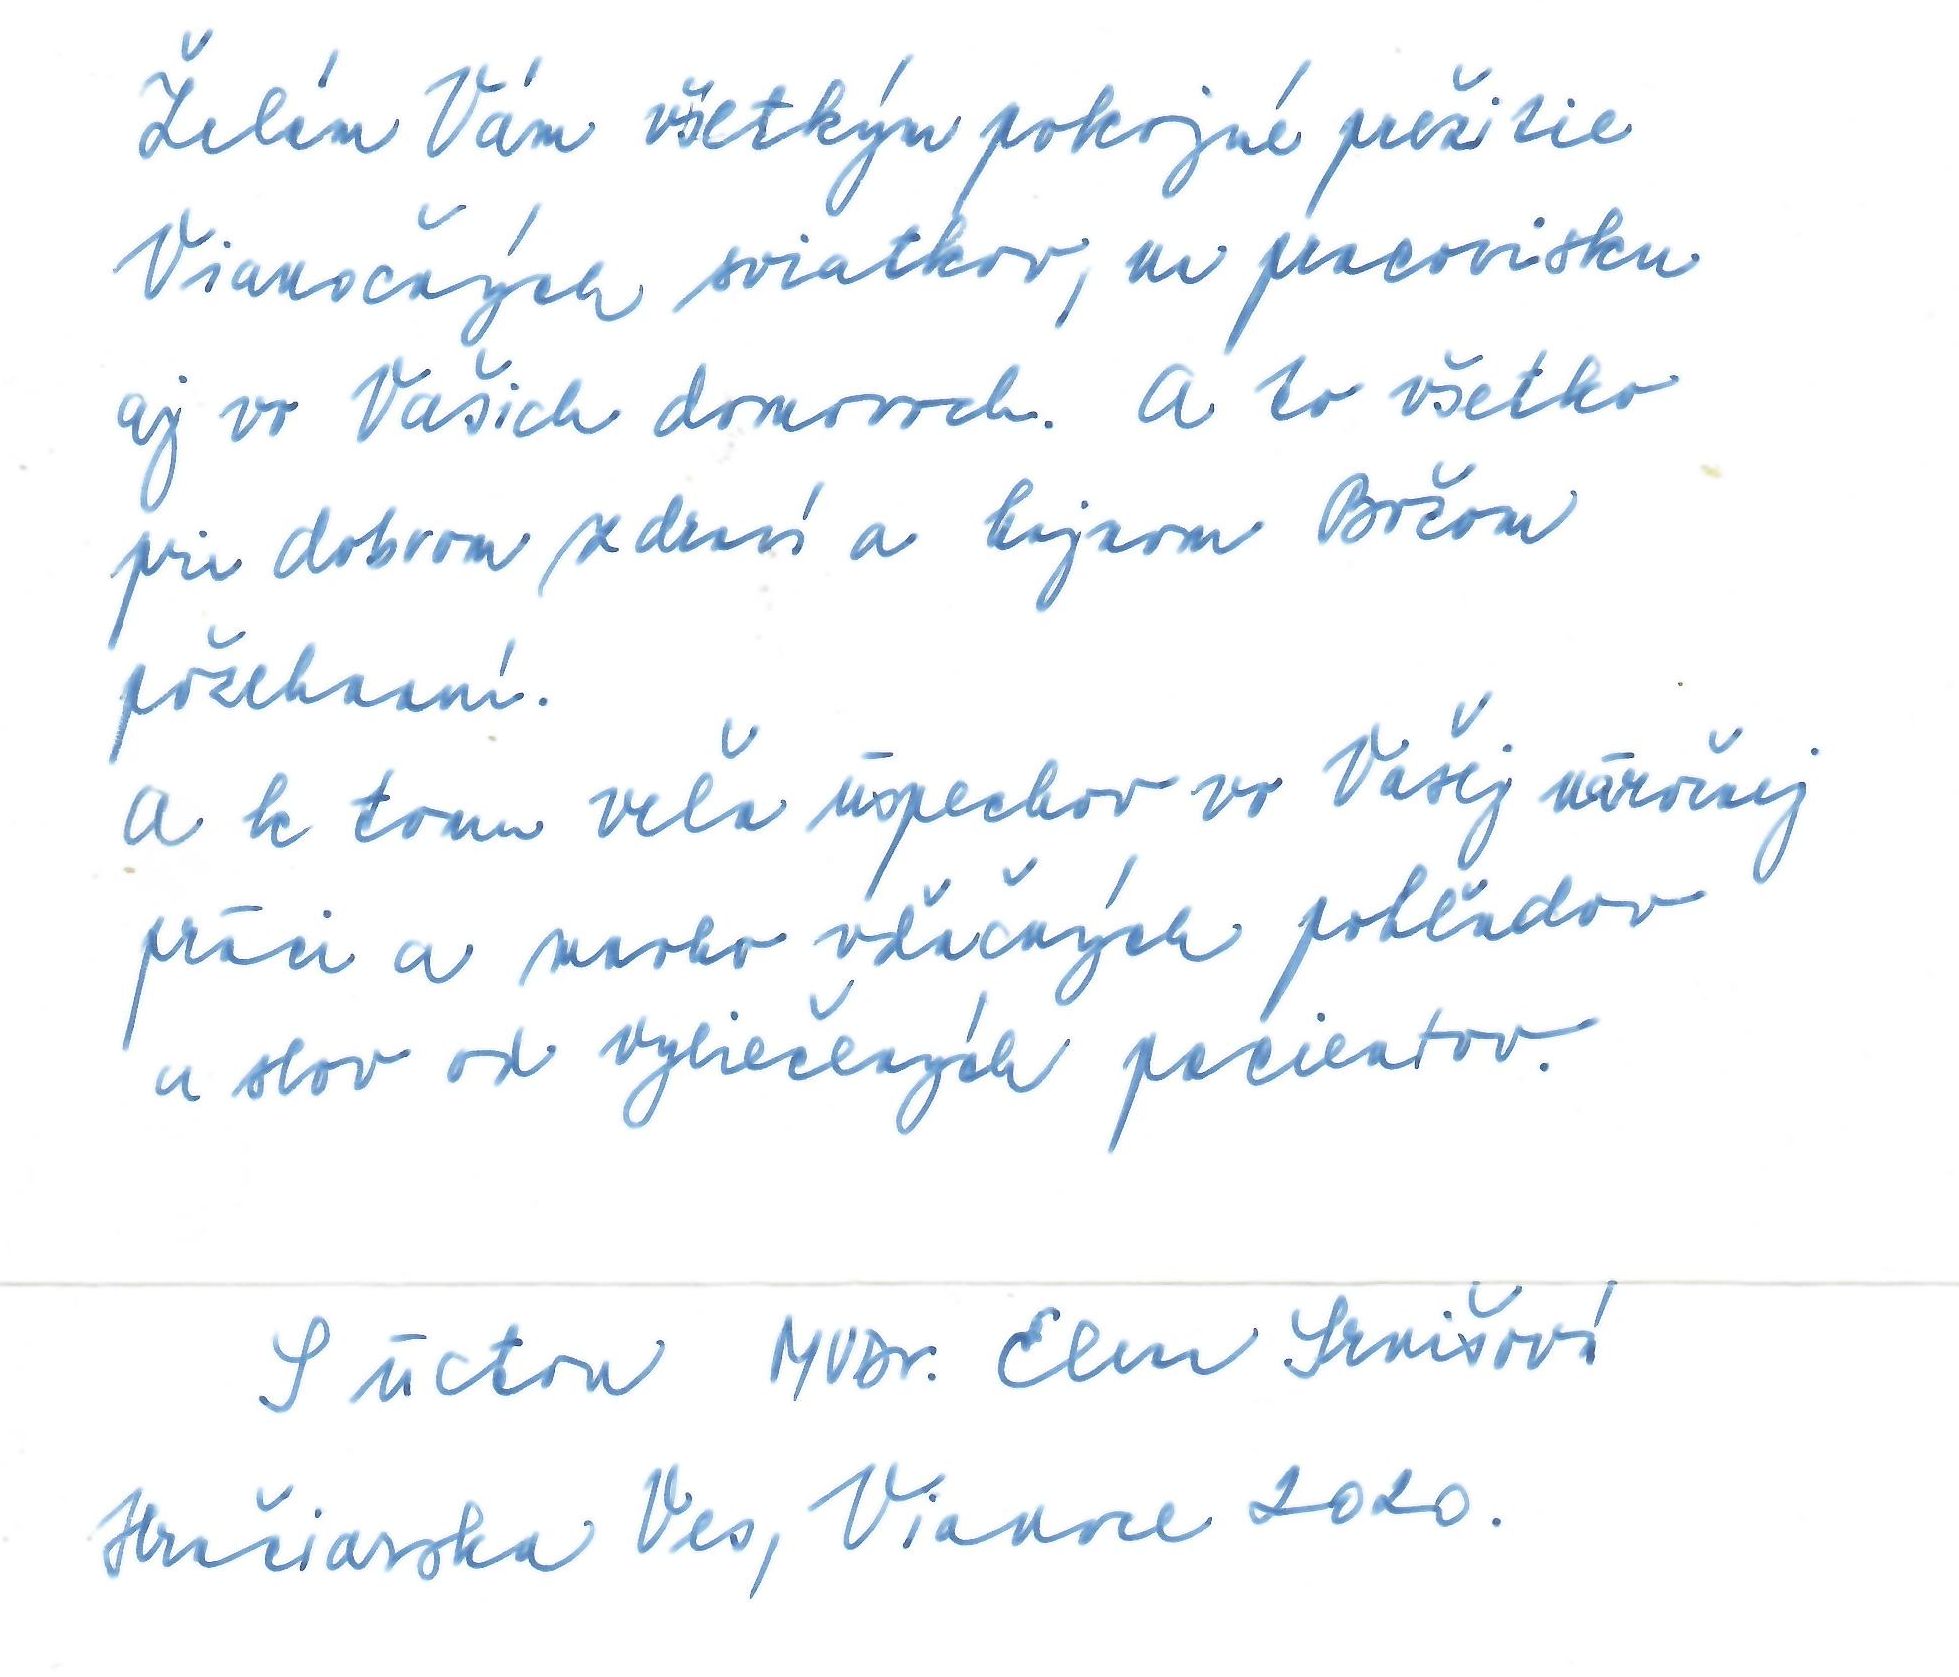 Želám Vám všetkým pokojné prežitie
Vianočných sviatkov, na pracovisku
aj vo Vašich domovoch. A to všetko
pri dobrom zdraví a hojnom Božom
požehnaní.
A k tomu veľa úspechov vo Vašej náročnej
práci a mnoho vďačných pohľadov
a slov od vyliečených pacientov.
S úctou MVDr. Elena
Ves, Vianoce 2020.